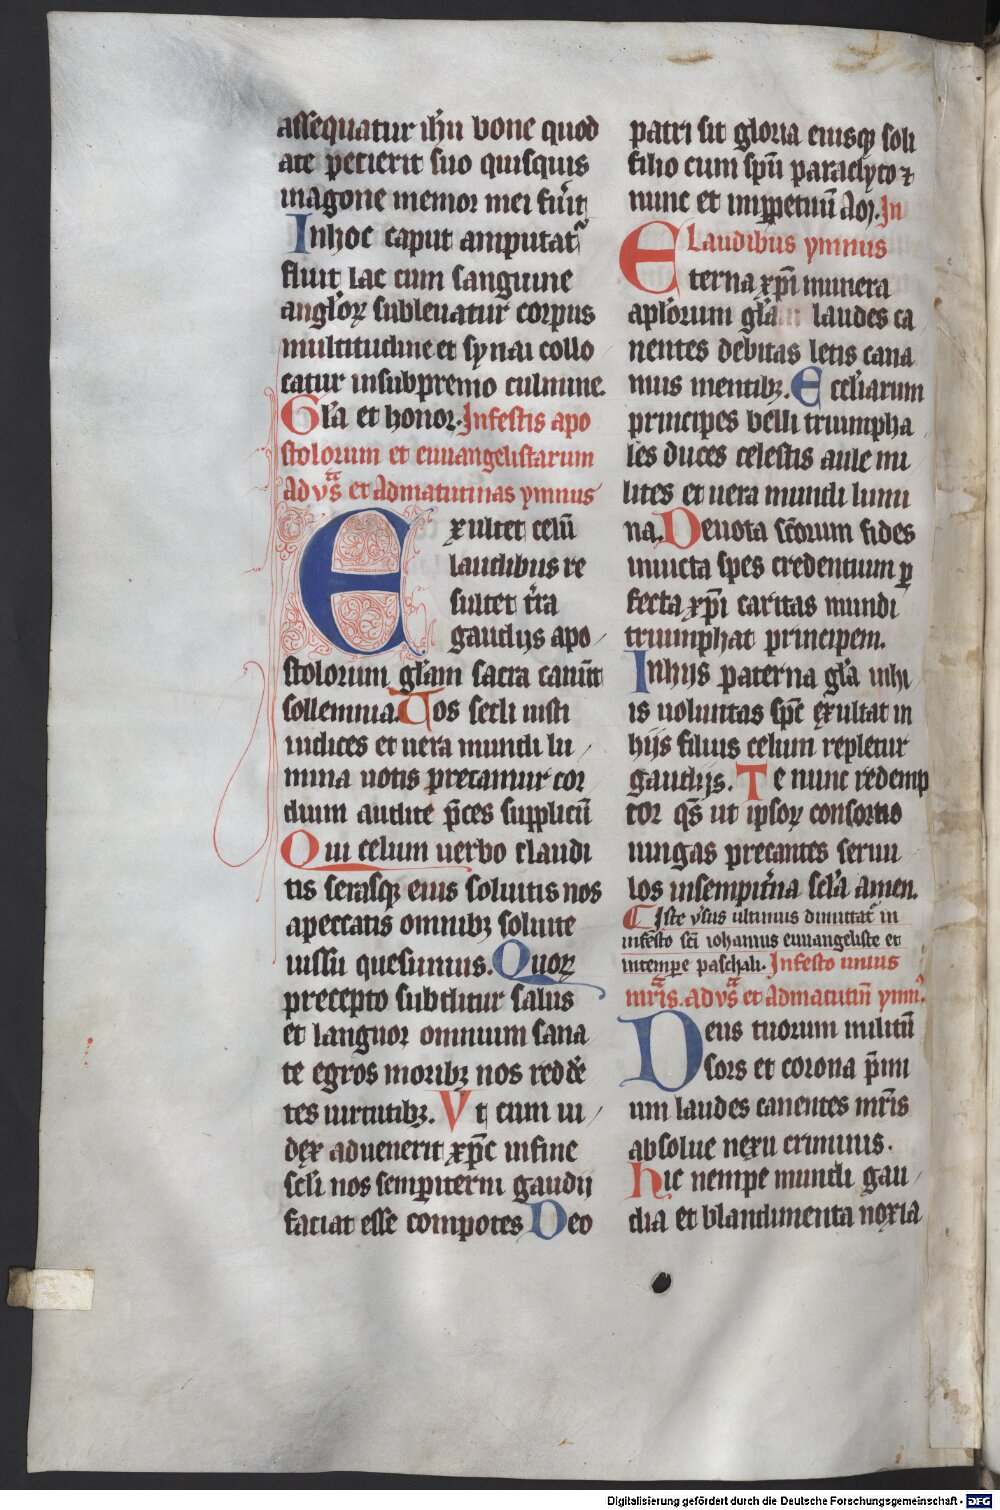 assequatur ihu bone quod
a te petierit suo quisquis
in agone memor mei fuit
In hoc caput amputat
fluit lac cum sanguine
anglorꝝ subleuatur corpus
multitudine et synai collo
catur in suppremo culmine.
Gla et honor. In festis apo
stolorum et euuangelistarum
ad vs et ad matutinas ymnus
Exultet celu
laudibus re
sultet tra
gaudijs apo
stolorum glam sacra canut
sollemnia. Vos secli iusti
iudices et uera mundi lu
mina uotis precamur cor
dium audite pces supplicu
Qui celum uerbo claudi
tis serasqꝫ eius soluitis nos
a peccatis omnibꝫ soluite
iussu quesumus. Quorꝝ
precepto subditur salus
et languor omnium sana
te egros moribꝫ nos redde
tes uirtutibꝫ. Vt cum iu
dex aduenerit xpc in fine
scli nos sempiterni gaudij
faciat esse compotes Deo
patri sit gloria eiusqꝫ soli
filio cum spu paraclyto ⁊
nunc et imppetuu Am. In
Laudibus ymnus
Eterna xpi munera
aplorum glam laudes ca
nentes debitas letis cana
mus mentibꝫ. Eccliarum
principes belli triumpha
les duces celestis aule mi
lites et uera mundi lumi
na. Deuota scorum fides
inuicta spes credentium ꝑ
fecta xpi caritas mundi
triumphat principem.
In hijs paterna gla in hi
is uoluntas spc exultat in
hijs filius celum repletur
gaudijs. Te nunc redemp
tor qs ut ipsorꝝ consortio
iungas precantes seruu
los in sempitna scla amen.
Iste vsus ultimus dimittat in
in festo sci iohannis euuangeliste et
in tempe paschali. In festo unius
mris. ad vs et ad matutin ymn
Deus tuorum militu
sors et corona pmi
um laudes canentes mris
absolue nexu criminis.
Hic nempe mundi gau
dia et blandimenta noxia
Digitalisierung gefördert durch die Deutsche Forschungsgemeinschaft - DFG